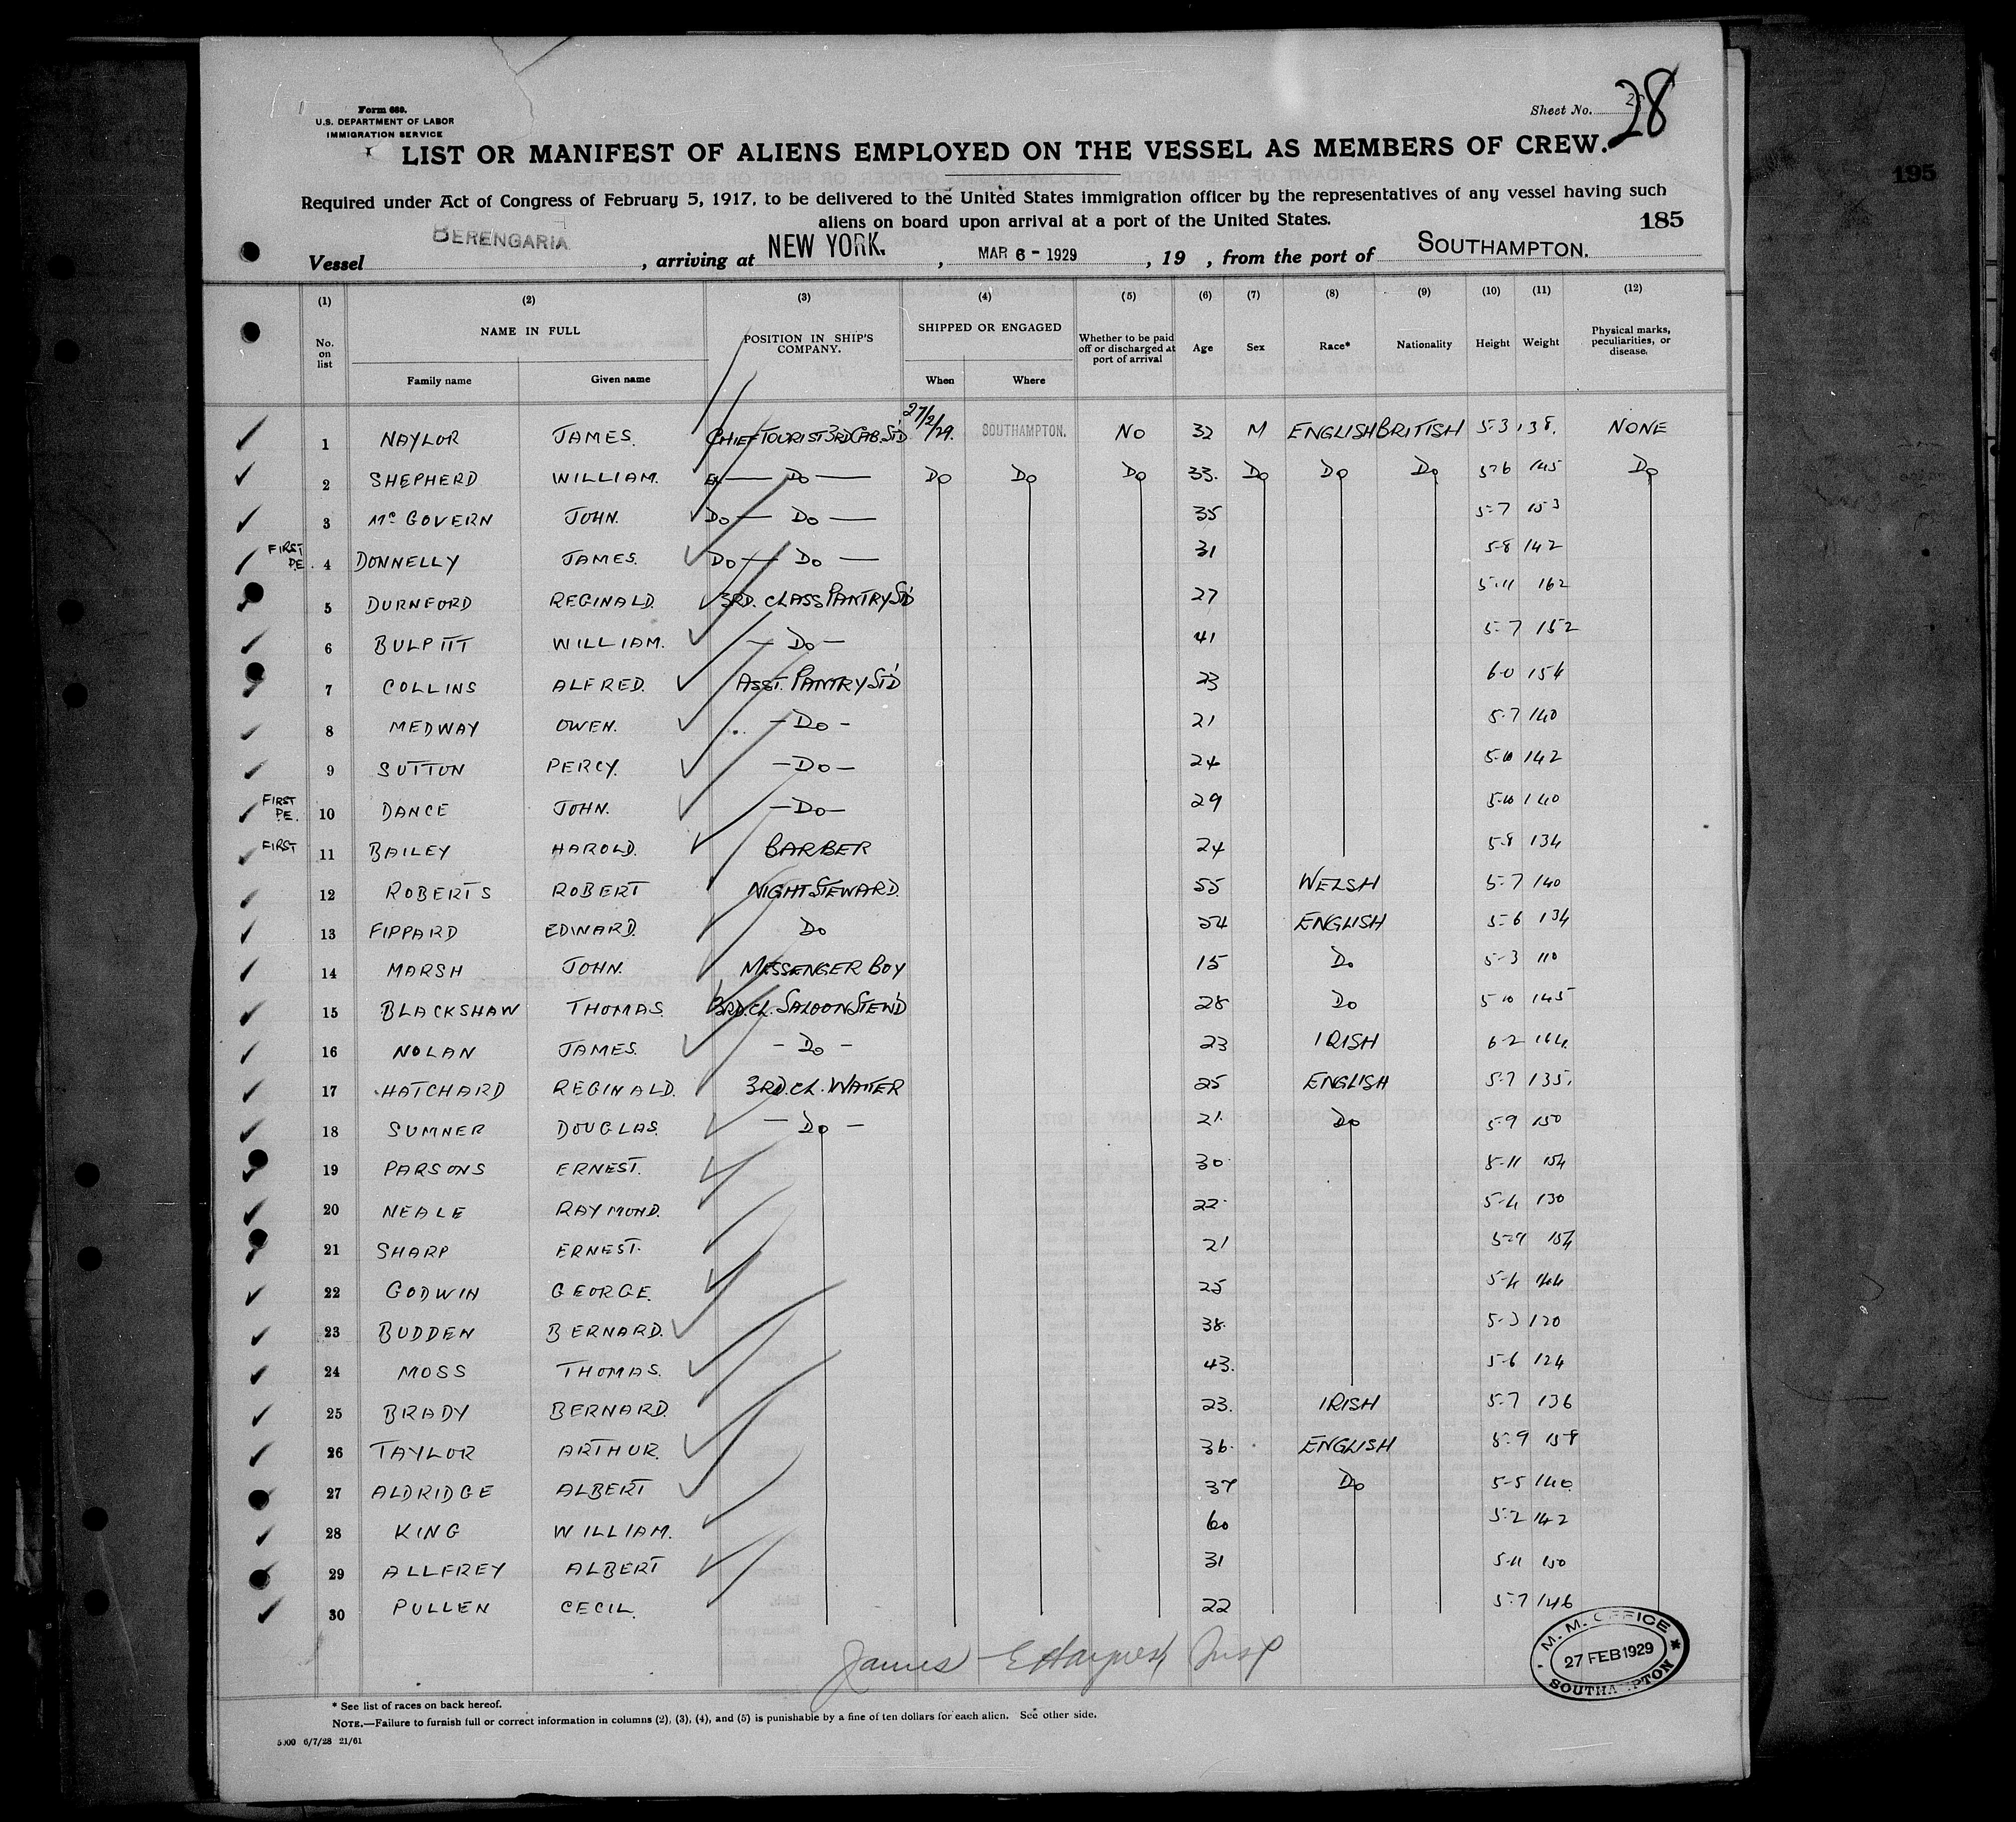 Form 680.
U.S. DEPARTMENT OF LABOR
IMMIGRATION SERVICE
Sheet No. 28
LIST OR MANIFEST OF ALIENS EMPLOYED ON THE VESSEL AS MEMBERS OF CREW.
195
Required under Act of Congress of February 5, 1917, to be delivered to the United States immigration officer by the representatives of any vessel having such
aliens on board upon arrival at a port of the United States.
185
Vessel BERENGARIA, arriving at NEW YORK., MAR 6 - 1929, 19 , from the port of SOUTHAMPTON.
(1) (2) (3) (4) (5) (6) (7) (8) (9) (10) (11) (12)
No. on list NAME IN FULL POSITION IN SHIP'S COMPANY. SHIPPED OR ENGAGED Whether to be paid off or discharged at port of arrival Age Sex Race* Nationality Height Weight Physical marks, peculiarities, or disease.
Family name Given name When Where
1 NAYLOR JAMES. CHIEF TOURIST 3RD CAB. ST'D 27/2/29. SOUTHAMPTON. NO 32 M ENGLISH BRITISH 5-3 138. NONE
2 SHEPHERD WILLIAM. — DO — DO DO DO 33. DO DO DO 5-6 145 DO
3 McGOVERN JOHN. DO — DO — 35 5-7 153
FIRST PE. 4 DONNELLY JAMES. DO — DO — 31 5-8 142
5 DURNFORD REGINALD. 3RD. CLASS PANTRY ST'D 27 5-11 162
6 BULPITT WILLIAM. — DO — 41 5-7 152
7 COLLINS ALFRED. ASST. PANTRY ST'D 23 6-0 154
8 MEDWAY OWEN. — DO — 21 5-7 140
9 SUTTON PERCY. — DO — 24 5-10 142
FIRST PE. 10 DANCE JOHN. — DO — 29 5-10 140
FIRST 11 BAILEY HAROLD. BARBER 24 5-8 134
12 ROBERTS ROBERT NIGHT STEWARD. 55 WELSH 5-7 140
13 FIPPARD EDWARD. DO 24 ENGLISH 5-6 134
14 MARSH JOHN. MESSENGER BOY 15 DO 5-3 110
15 BLACKSHAW THOMAS. 3RD. CL. SALOON STEW'D 28 DO 5-10 145
16 NOLAN JAMES. — DO — 23 IRISH 6-2 164.
17 HATCHARD REGINALD. 3RD. CL. WAITER 25 ENGLISH 5-7 135.
18 SUMNER DOUGLAS. — DO — 21. DO 5-9 150
19 PARSONS ERNEST. 30 5-11 154
20 NEALE RAYMOND. 22 5-4 130
21 SHARP ERNEST. 21 5-9 154
22 GODWIN GEORGE. 25 5-4 144
23 BUDDEN BERNARD. 38. 5-3 120
24 MOSS THOMAS. 43. 5-6 124
25 BRADY BERNARD. 23. IRISH 5-7 136
26 TAYLOR ARTHUR. 36. ENGLISH 5-9 158
27 ALDRIDGE ALBERT 37 DO 5-5 140
28 KING WILLIAM. 60 5-2 142
29 ALLFREY ALBERT 31 5-11 150
30 PULLEN CECIL. 22 5-7 146
James Insp
M. M. OFFICE
27 FEB 1929
SOUTHAMPTON
* See list of races on back hereof.
NOTE.—Failure to furnish full or correct information in columns (2), (3), (4), and (5) is punishable by a fine of ten dollars for each alien. See other side.
5000 6/7/28 21/61